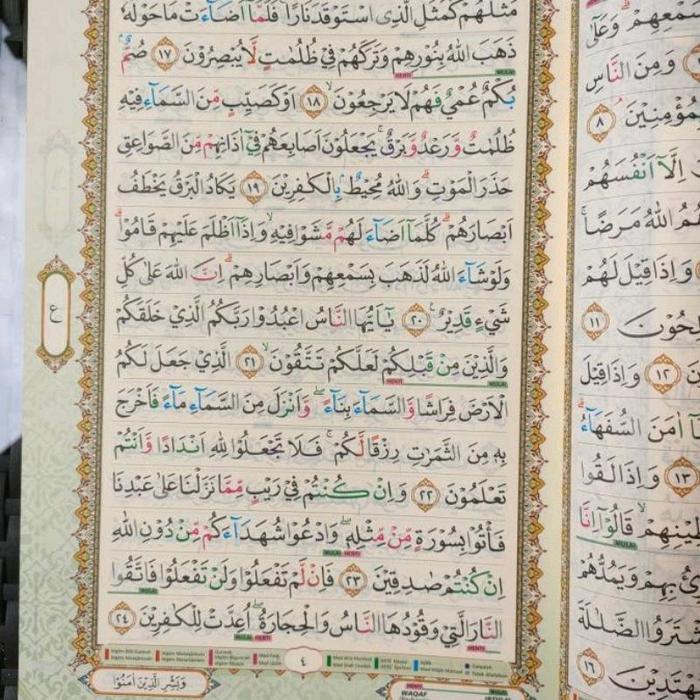 مَثَلُهُمْ كَمَثَلِ الَّذِى اسْتَوْقَدَ نَارًا ۚ فَلَمَّآ اَضَاۤءَتْ مَا حَوْلَهٗ
ذَهَبَ اللّٰهُ بِنُوْرِهِمْ وَتَرَكَهُمْ فِيْ ظُلُمٰتٍ لَّا يُبْصِرُوْنَ ١٧ صُمٌّ ۢ
بُكْمٌ عُمْيٌ فَهُمْ لَا يَرْجِعُوْنَ ۙ ١٨ اَوْ كَصَيِّبٍ مِّنَ السَّمَاۤءِ فِيْهِ
ظُلُمٰتٌ وَّرَعْدٌ وَّبَرْقٌ ۚ يَجْعَلُوْنَ اَصَابِعَهُمْ فِيْٓ اٰذَانِهِمْ مِّنَ الصَّوَاعِقِ
حَذَرَ الْمَوْتِ ۗ وَاللّٰهُ مُحِيْطٌ ۢ بِالْكٰفِرِيْنَ ١٩ يَكَادُ الْبَرْقُ يَخْطَفُ
اَبْصَارَهُمْ ۗ كُلَّمَآ اَضَاۤءَ لَهُمْ مَّشَوْا فِيْهِ ۙ وَاِذَآ اَظْلَمَ عَلَيْهِمْ قَامُوْا ۗ
وَلَوْ شَاۤءَ اللّٰهُ لَذَهَبَ بِسَمْعِهِمْ وَاَبْصَارِهِمْ ۗ اِنَّ اللّٰهَ عَلٰى كُلِّ
شَيْءٍ قَدِيْرٌ ۚ ٢٠ يٰٓاَيُّهَا النَّاسُ اعْبُدُوْا رَبَّكُمُ الَّذِيْ خَلَقَكُمْ
وَالَّذِيْنَ مِنْ قَبْلِكُمْ لَعَلَّكُمْ تَتَّقُوْنَ ۙ ٢١ الَّذِيْ جَعَلَ لَكُمُ
الْاَرْضَ فِرَاشًا وَّالسَّمَاۤءَ بِنَاۤءً ۖ وَّاَنْزَلَ مِنَ السَّمَاۤءِ مَاۤءً فَاَخْرَجَ
بِهٖ مِنَ الثَّمَرٰتِ رِزْقًا لَّكُمْ ۚ فَلَا تَجْعَلُوْا لِلّٰهِ اَنْدَادًا وَّاَنْتُمْ
تَعْلَمُوْنَ ٢٢ وَاِنْ كُنْتُمْ فِيْ رَيْبٍ مِّمَّا نَزَّلْنَا عَلٰى عَبْدِنَا
فَأْتُوْا بِسُوْرَةٍ مِّنْ مِّثْلِهٖ ۖ وَادْعُوْا شُهَدَاۤءَكُمْ مِّنْ دُوْنِ اللّٰهِ
اِنْ كُنْتُمْ صٰدِقِيْنَ ٢٣ فَاِنْ لَّمْ تَفْعَلُوْا وَلَنْ تَفْعَلُوْا فَاتَّقُوا
النَّارَ الَّتِيْ وَقُوْدُهَا النَّاسُ وَالْحِجَارَةُ ۖ اُعِدَّتْ لِلْكٰفِرِيْنَ ٢٤
٤
وَبَشِّرِ الَّذِيْنَ اٰمَنُوْا
ع
وَعَلٰٓى
وَمِنَ النَّاسِ
٨
اِلَّآ اَنْفُسَهُمْ
اللّٰهُ مَرَضًا ۚ
وَاِذَا قِيْلَ لَهُمْ
١١
١٢ وَاِذَا قِيْلَ
اٰمَنَ السُّفَهَاۤءُ ۗ
١٣ وَاِذَا لَقُوا
قَالُوْٓا اِنَّا
وَيَمُدُّهُمْ
الضَّلٰلَةَ
١٦
WAQAF